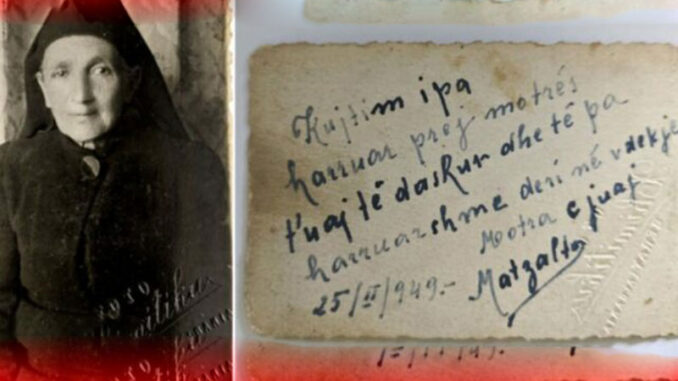 Kujtim i pa
harruar prej motrés
t'uaj té daskur dhe té pa
harruarshme deri né vdekje
Motra e juaj
25/II/949.- Matzalto